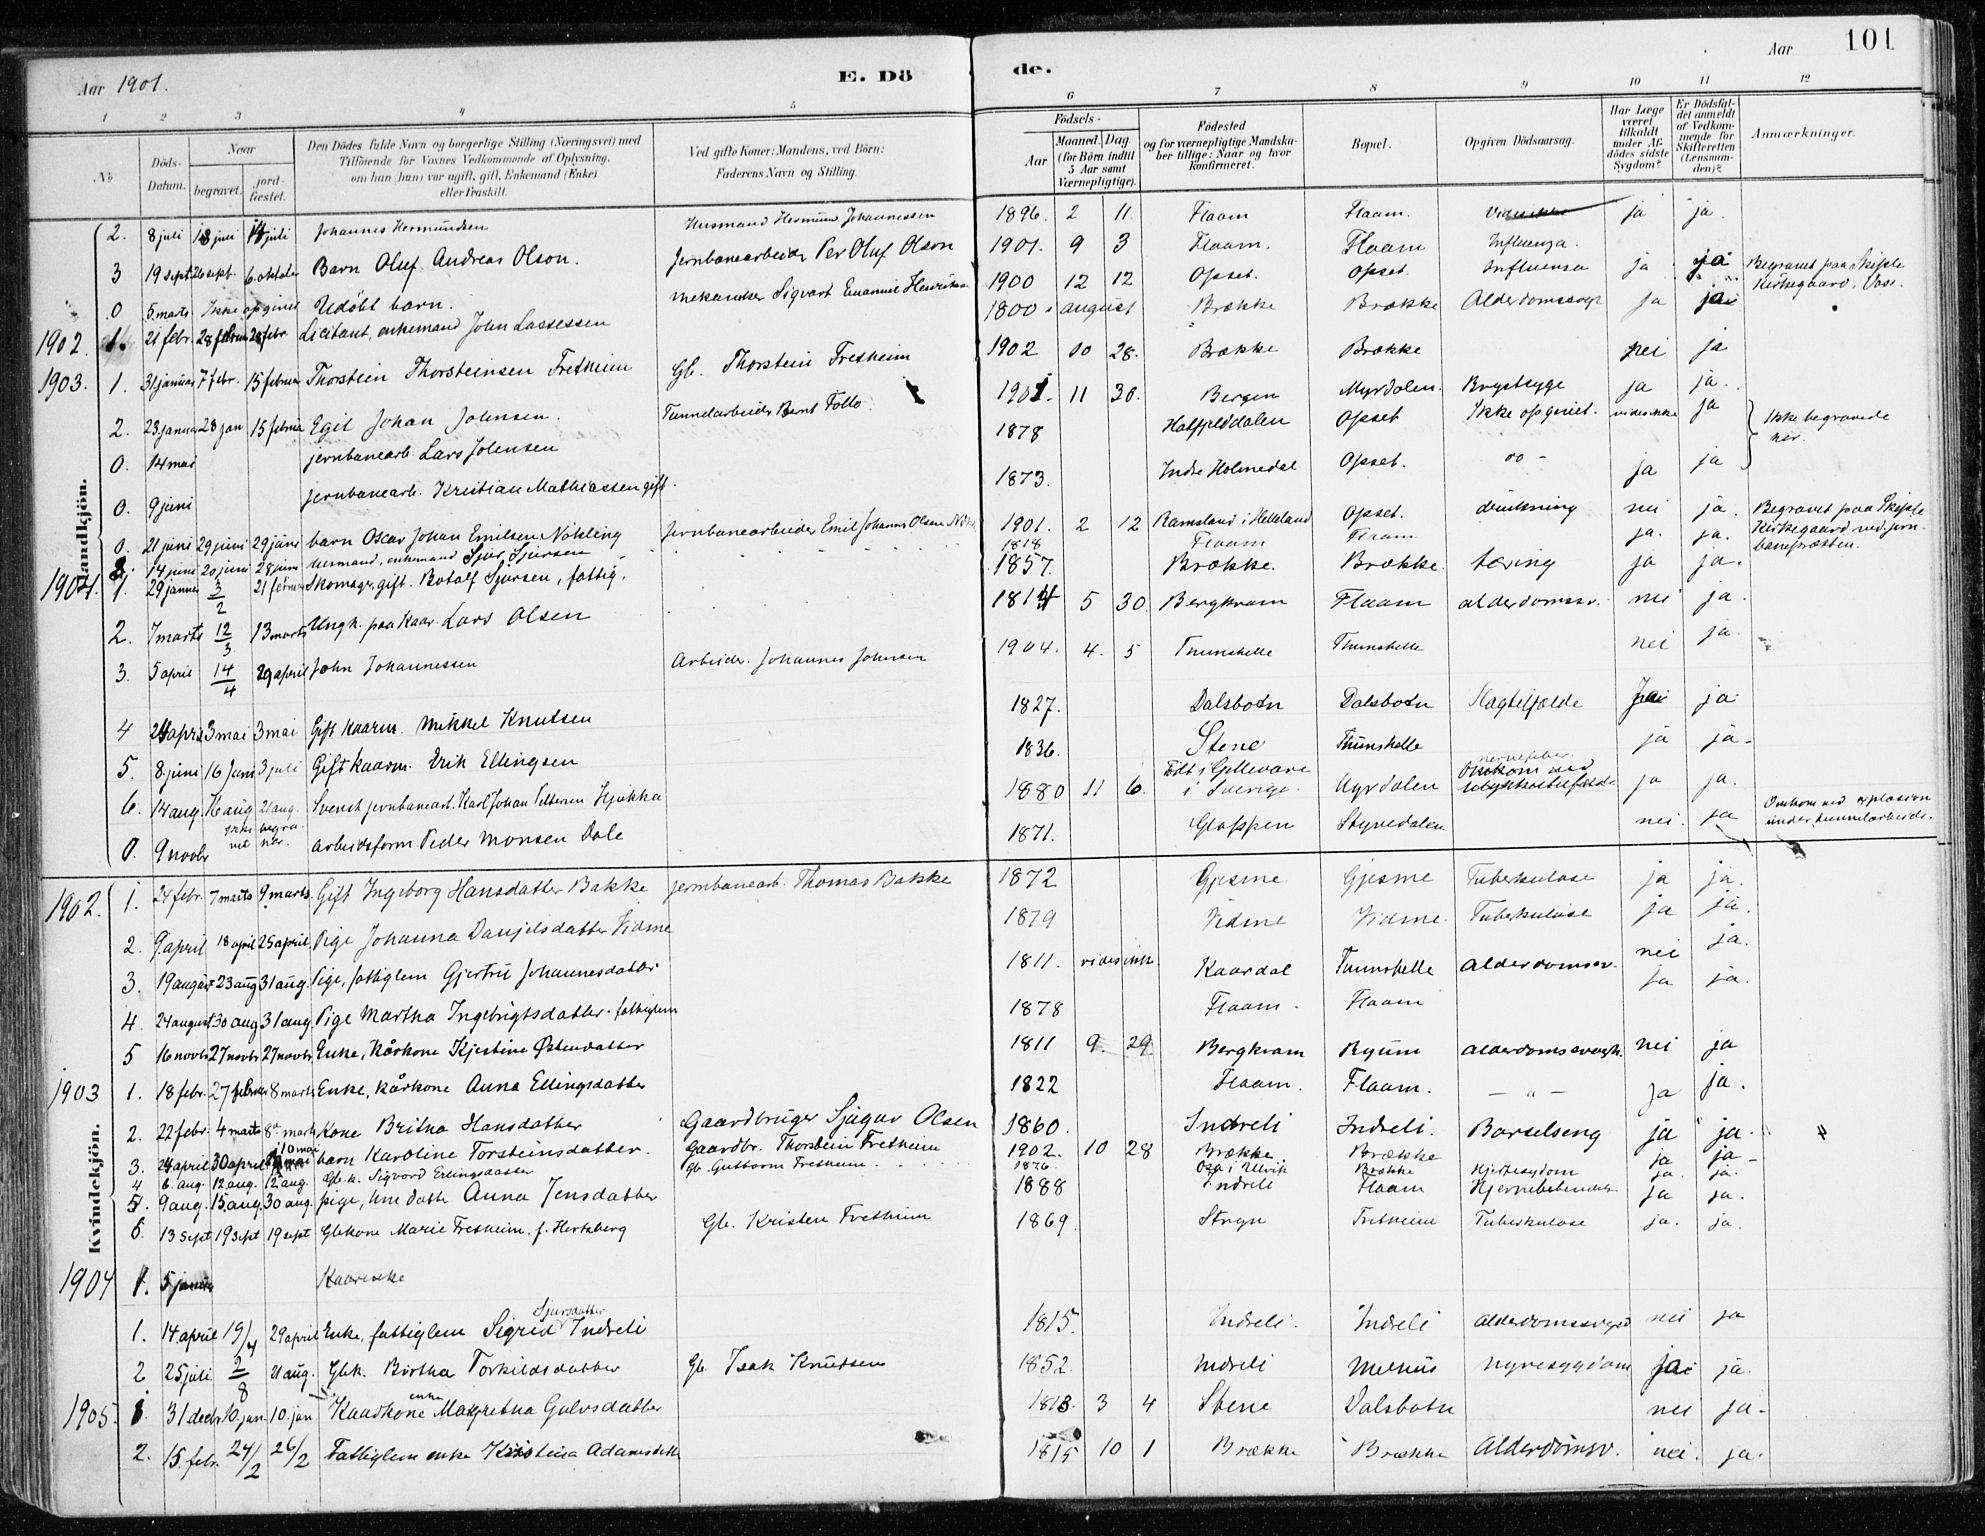 Aar 1901.
E. Dö
de.
Aar
101
1 2 3 4 5 6 7 8 9 10 11 12
No
Döds-Datum.
Naar
begravet.
jord-fæstet.
Den Dödes fulde Navn og borgerlige Stilling (Næringsvei) med Tilföiende for Voxnes Vedkommende af Oplysning, om han (hun) var ugift, gift, Enkemand (Enke) eller fraskilt.
Ved gifte Koner: Mandens, ved Börn: Faderens Navn og Stilling.
Födsels-
Aar
Maaned. Dag.
(for Börn indtil 5 Aar samt Værnepligtige).
Födested og for værnepligtige Mandska-ber tillige: Naar og hvor konfirmeret.
Bopæl.
Opgiven Dödsaarsag.
Har Læge været tilkaldt under Af-dödes sidste Sygdom?
Er Dödsfal-det anmeldt af Vedkom-mende for Skifteretten (Lensman-den)?
Anmærkninger.
Mandkjön.
2. 8 juli 13 juli 14 juli Johannes Hermundsen Husmand Hermund Johannessen 1896. 2 11 Flaam Flaam. Vides ikke ja ja.
3 19 sept 26 sept. 6. oktober Barn Oluf Andreas Olson. Jernbanearbeider Per Oluf Olson 1901. 9 3 Flaam. Flaam Influenza.
0 5. marts Ikke opgivet Udöbt barn. Mekaniker Sigvart Emanuel Henriksen 1900 12 12 Opset. Opset. Influensa ja ja Begravet paa Skiple Kirkegaard, Voss.
1902. 1. 21 febr. 28 februar 28 febr Licitant, enkemand John Lassessen 1800 i august Brække Brække Alderdomssvgh ja ja
1903. 1. 31 januar 7 febr. 15 februar Thorstein Thorsteinsen Fretheim Gb. Thorstein Fretheim 1902 10 28. Brække Brække nei ja
2. 23 januar 28 jan 15 februar Egil Johan Johnsen. Tunnelarbeider Bernt Follo. 1901. 11 30. Bergen Myrdalen. Brystsyge ja ja.
0. 14 mai jernbanearb. Lars Johnsen 1878 Hatfjelddalen Opset Ikke opgivet. vides ikke ja Ikke begravede her.
0. 9 juni jernbanearb. Kristian Mathiassen gift. 1873. Indre Holmedal Opset. do - ja ja
0. 21 juni 29 juni 29 juni barn Oscar Johan Emilsen Nökling Jernbanearbeider Emil Johannes Olsen Nökl 1901. 2 12 Ramsland i Helleland Opset. drukning nei ja. Begravet paa Skiple Kirkegaard ved jern-baneprætten.
2. 14 juni 20 juni 28 juni Husmand, enkemand Sjur Sjursen 1818 Flaam Flaam ja. ja.
1904. 1. 29 januar 3/2 21 februar Skomager, gift. Botolf Sjursen, fattig. 1857. Brække. Brække. tæring ja ja.
2. 7 marts 12/3 13 marts Ungk. paa Kaar. Lars Olsen 1814 5 30. Bergkvam Flaam alderdomssv. nei ja.
3. 5 april 14/4 29 april John Johannessen Arbeider. Johannes Johnsen 1904. 4. 5 Thunshelle Thunshelle nei ja.
4 24 april 3 mai 3 mai Gift kaarm. Mikkel Knutsen 1827. Dalsbotn Dalsbotn Slagtelfælde ja ja
5. 8. juni 16 juni 3 juli Gift kaarm. Erik Ellingsen 1836. Stene Thunshelle nervefeber ja ja.
6. 14 aug. 16 aug 21 aug. Svensk jernbanearb. Karl Johan Pettersen Hjukka 1880 11 6. Födt i Gellevare i Sverige. Myrdalen Omkom ved ulykkestilfælde ja ja.
0. 9 novbr ikke begravet her. Arbeidsform. Peder Monsen Dale 1871. Gloppen Styvedalen nei. ja Omkom ved explosion under tunnelarbeide.
Kvindekjön.
1902. 1. 24 febr. 7 marts 9 marts. Gift Ingeborg Hansdatter Bakke jernbanearb. Thomas Bakke 1872 Gjesme Gjesme Tuberkulose ja ja.
2. 9 april 18 april 25 april. Pige Johanna Danjelsdatter Vidme 1879 Vidme Vidme. Tuberkulose ja ja.
3. 19 august 23 aug 31 aug. Pige, fattiglem Gjertrud Johannesdatter 1811. vides ikke. Kaardal Tunnshelle Alderdomssv. nei ja.
4. 24 august 30 aug 31 aug. Pige Martha Ingebrigtsdatter. fattiglem 1878 Flaam. Flaam ja ja.
5 16 novbr 27 novbr 27 novbr Enke, Kårkone Kjestine Östensdatter 1811 9. 29. Bergkvam Ryum Alderdomssvagh. nei ja
1903 1. 18 febr. 27 februar 8 marts Enke, kårkone Anna Ellingsdatter 1822 Flaam. Flaam. — „ — ja ja.
2. 22 febr. 4 marts 8 marts Kone Britha Hansdatter Gaardbruger Sjugur Olsen 1860. Indreli Indreli. Barselseng ja ja.
3. 24 april 30 april 10 mai barn Karoline Torsteinsdatter. Gaardbr. Thorstein Fretheim 1902. 10 28 Brække. Brække ja ja
4 6. aug. 12 aug. 12 aug. Gb. k. Sigvord Erlingsdatter Gb. Guttorm Fretheim 1876 Osa i Ulvik Brække Hjertesygdom ja. ja.
5. 9 aug. 15. aug. 30 aug. pige, hm datt. Anna Jensdatter 1888 Indreli Flaam Hjernebetændelse ja ja.
6. 13 sept 19 sept 19 sept Gbkone Marie Fretheim. f. Hertzberg Gb. Kristen Fretheim 1869. Stryn Fretheim Tuberkulose ja. ja.
1904 1. 5 januar Kaarenke
1. 14 april 19/4 29 april Enke, fattiglem Sigrid Sjursdatter Indreli 1815. Indreli. Indreli Alderdomssvged nei ja
2 25 juli 2/8 21 aug. Gbk. Birtha Torkildsdatter Gb. Isak Knudsen 1852. Indreli Melhus nyresygdom ja ja.
1905. 1. 31 decbr 10. jan 10. jan Kaarkone enke Magretha Gulvsdatter 1813. 3 4 Stene Dalsbotn nei ja.
2. 15. febr. 24/2 26/2 Fattiglem enke Kristina Adamsdtt 1815 10 1 Brække Brække Alderdomsv. nei. ja.